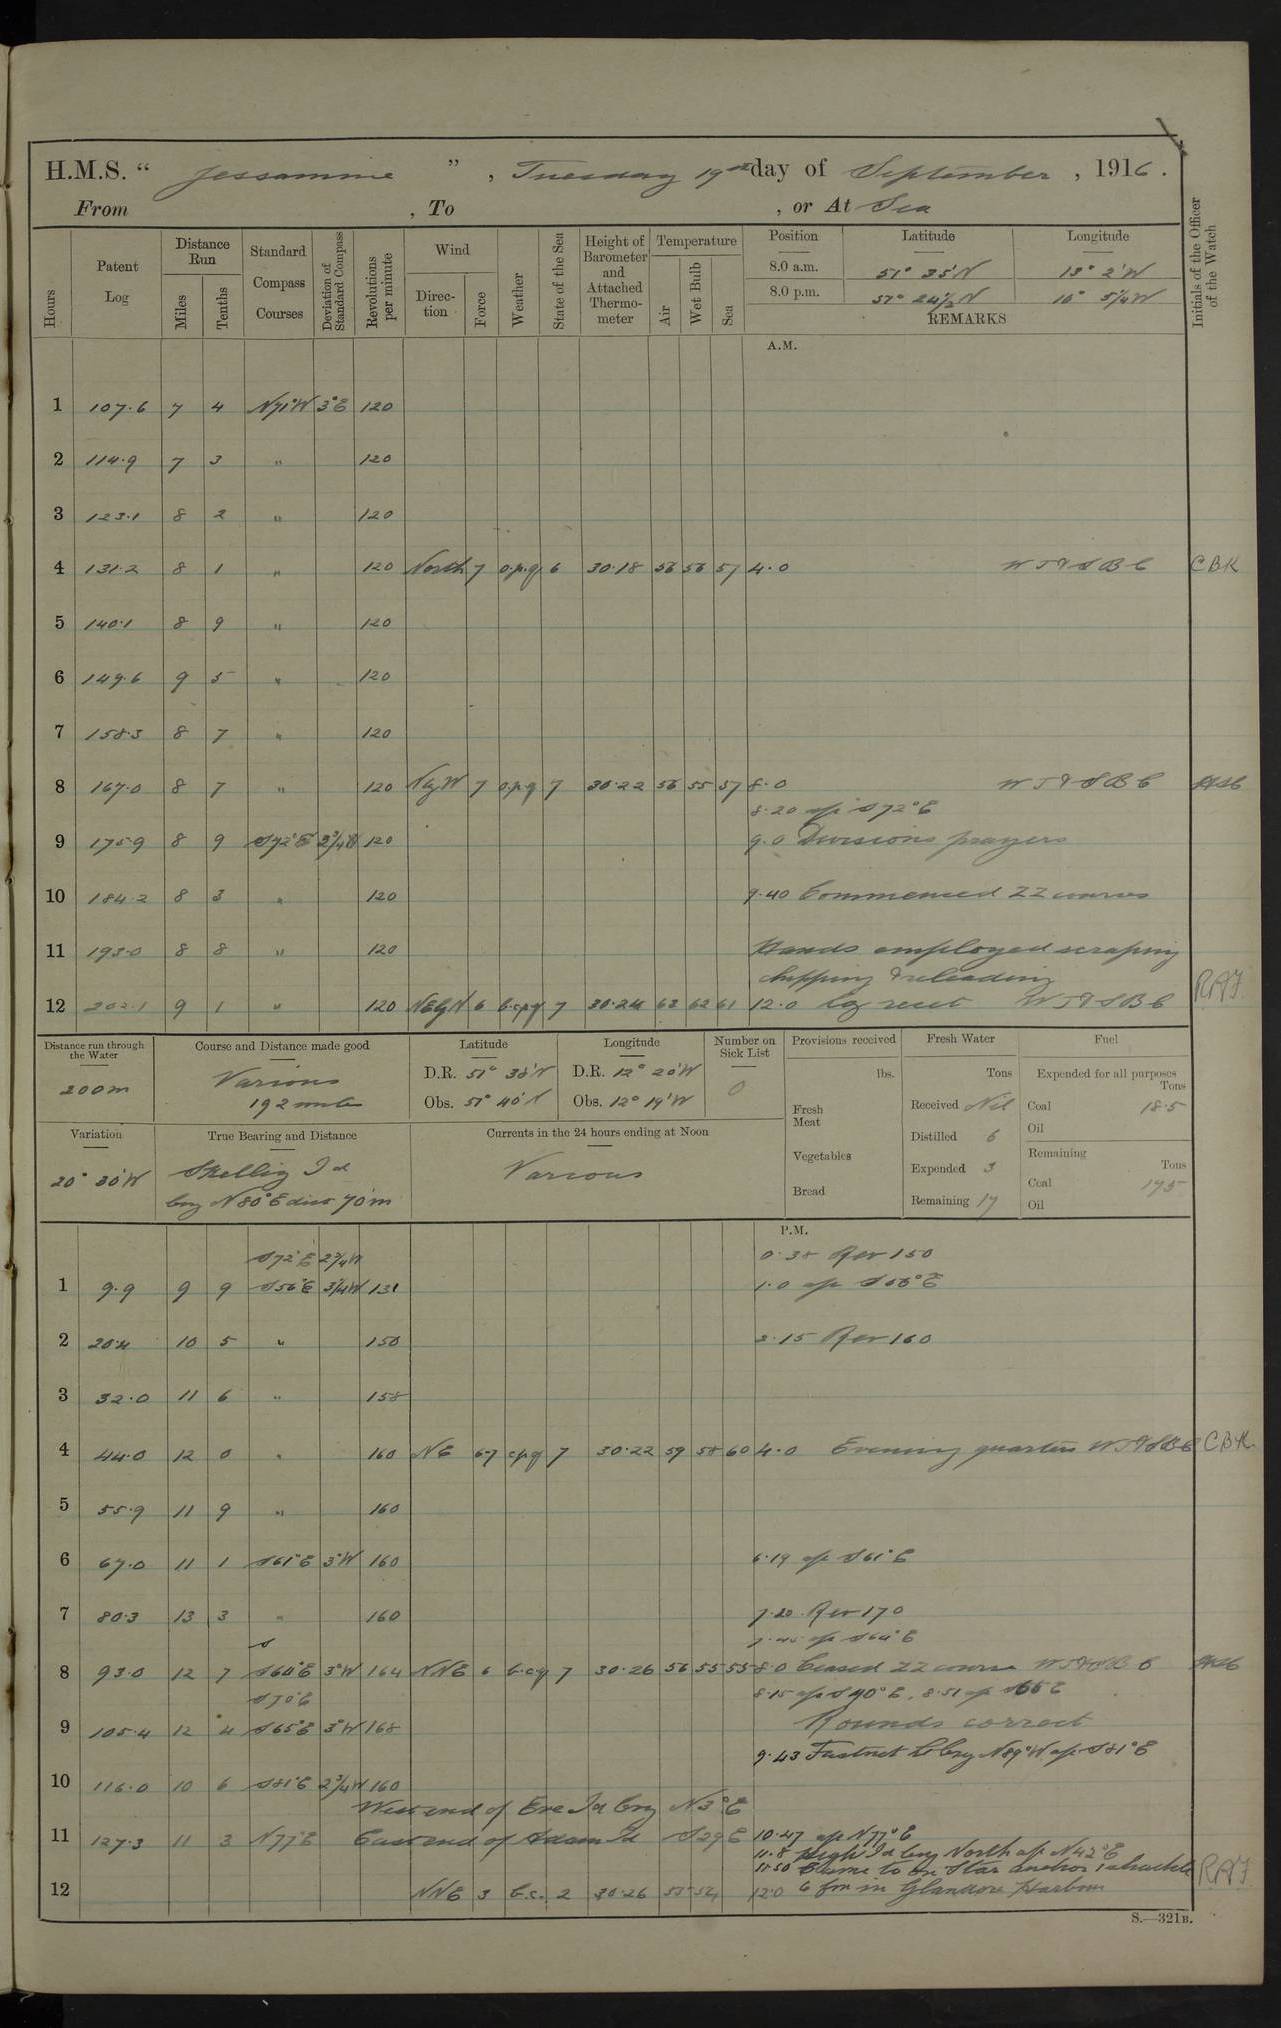 H.M.S. " Jessamine ", Tuesday 19th day of September, 1916.
From , To , or At Sea
Hours
Patent Log
Distance Run
Miles
Tenths
Standard Compass Courses
Deviation of Standard Compass
Revolutions per minute
Wind
Direction
Force
Weather
State of the Sea
Height of Barometer and Attached Thermometer
Temperature
Air
Wet Bulb
Sea
Position Latitude Longitude
8.0 a.m. 51° 35'N 13° 2'W
8.0 p.m. 51° 24½'N 10° 5¼'W
REMARKS
Initials of the Officer of the Watch
A.M.
1 107.6 7 4 N71°W 3°E 120
2 114.9 7 3 " 120
3 123.1 8 2 " 120
4 131.2 8 1 " 120 North 7 o.p.q 6 30.18 56 56 57 4.0 W T & S B C CBK
5 140.1 8 9 " 120
6 149.6 9 5 " 120
7 158.3 8 7 " 120
8 167.0 8 7 " 120 NbyW 7 o.p.q 7 30.22 56 55 57 8.0 W T & S B C
8.20 a/c S72°E
9 175.9 8 9 S72°E 2¾W 120 9.0 Divisions prayers
10 184.2 8 3 " 120 9.40 Commenced ZZ courses
11 193.0 8 8 " 120 Hands employed scraping
chipping & releading
12 202.1 9 1 " 120 NEbyN 6 b.c.p.q 7 30.24 63 62 61 12.0 W T & S B C RAF
Distance run through the Water
200m
Course and Distance made good
Various
192 miles
Latitude
D.R. 51° 38'N
Obs. 51° 40'N
Longitude
D.R. 12° 20'W
Obs. 12° 19'W
Number on Sick List
0
Provisions received
lbs.
Fresh Meat
Vegetables
Bread
Fresh Water
Tons
Received Nil
Distilled 6
Expended 3
Remaining 17
Fuel
Expended for all purposes
Tons
Coal 18.5
Oil
Remaining
Tons
Coal 195
Oil
Variation
20° 30'W
True Bearing and Distance
Skellig Id
brg N80°E dist 70'm
Currents in the 24 hours ending at Noon
Various
P.M.
S72°E 2¾W 0.38 Rev 150
1 9.9 9 9 S56°E 3¼W 131 1.0 a/c S56°E
2 20.4 10 5 " 150 2.15 Rev 160
3 32.0 11 6 " 158
4 44.0 12 0 " 160 NE 6-7 cpq 7 30.22 59 58 60 4.0 Evening quarters W T & S B C CBK
5 55.9 11 9 " 160
6 67.0 11 1 S61°E 3°W 160 6.19 a/c S61°E
7 80.3 13 3 " 160 7.20 Rev 170
7.45 a/c S64°E
8 93.0 12 7 S64°E 3°W 164 NNE 6 b.c.q 7 30.26 56 55 55 8.0 Ceased ZZ course W T & S B C
S70°E 8.15 a/c S70°E. 8.51 a/c S65E
9 105.4 12 4 S65°E 3°W 168 Rounds correct
9.43 Fastnet Lt brg N89°W a/c S81°E
10 116.0 10 6 S81°E 2¾W 160
West end of Eve Id brg N3°E
11 127.3 11 3 N77°E East end of Adam Id S29E 10.47 a/c N77°E
11.8 High Id brg North a/c N42°E
11.50 Came to on Star anchor 1 shackle
12 NNE 3 b.c. 2 30.26 55 54 12.0 6 fm in Glandore Harbour RAF
S.—321B.